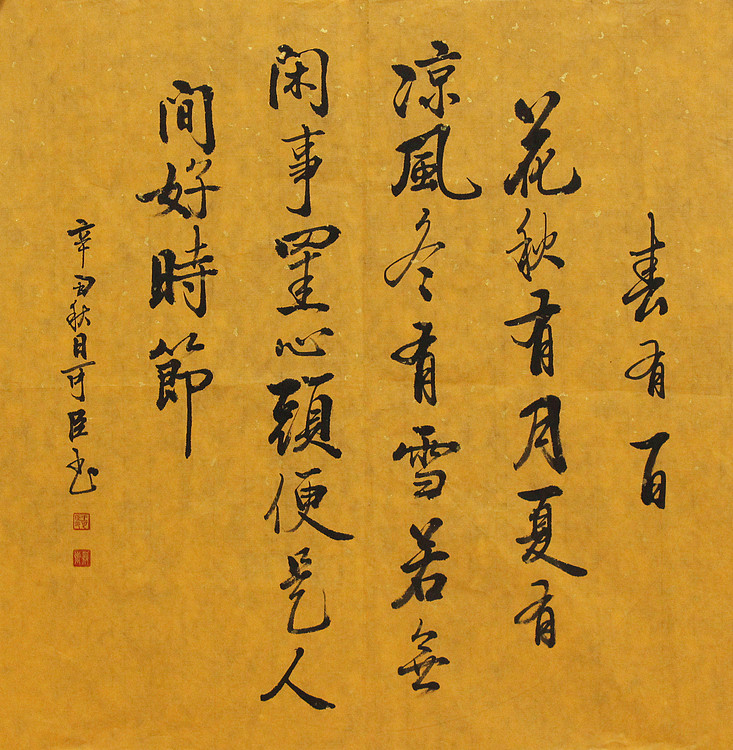 春有百
花秋有月夏有
涼風冬有雪若無
閑事罣心頭便是人
間好時節
辛丑秋日可臣书